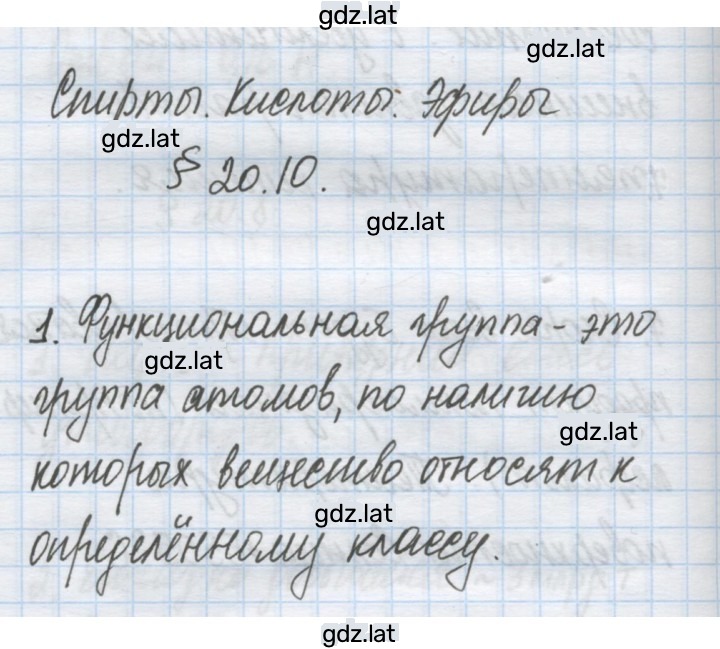 gdz.lat
gdz.lat
Спирты. Кислоты. Эфиры
gdz.lat
§ 20.10.
gdz.lat
1. Функциональная группа - это
gdz.lat
группа атомов, по наличию
gdz.lat
которых вещество относят к
gdz.lat
определённому классу.
gdz.lat